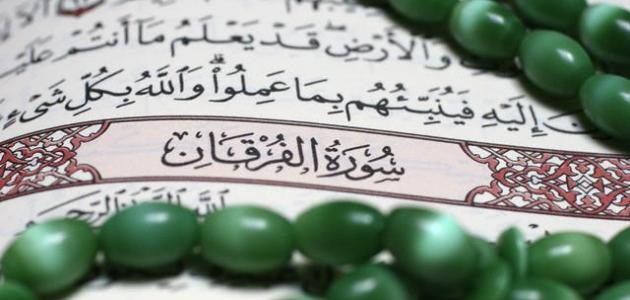 وَٱلْأَرْضِ قَدْ يَعْلَمُ مَآ أَنتُمْ عَلَيْ
إِلَيْهِ فَيُنَبِّئُهُم بِمَا عَمِلُوا۟ وَٱللَّهُ بِكُلِّ شَىْءٍ
سُورَةُ الفُرْقَانِ
ٱللَّهِ ٱلرَّحْمَٰنِ ٱلرَّحِيمِ